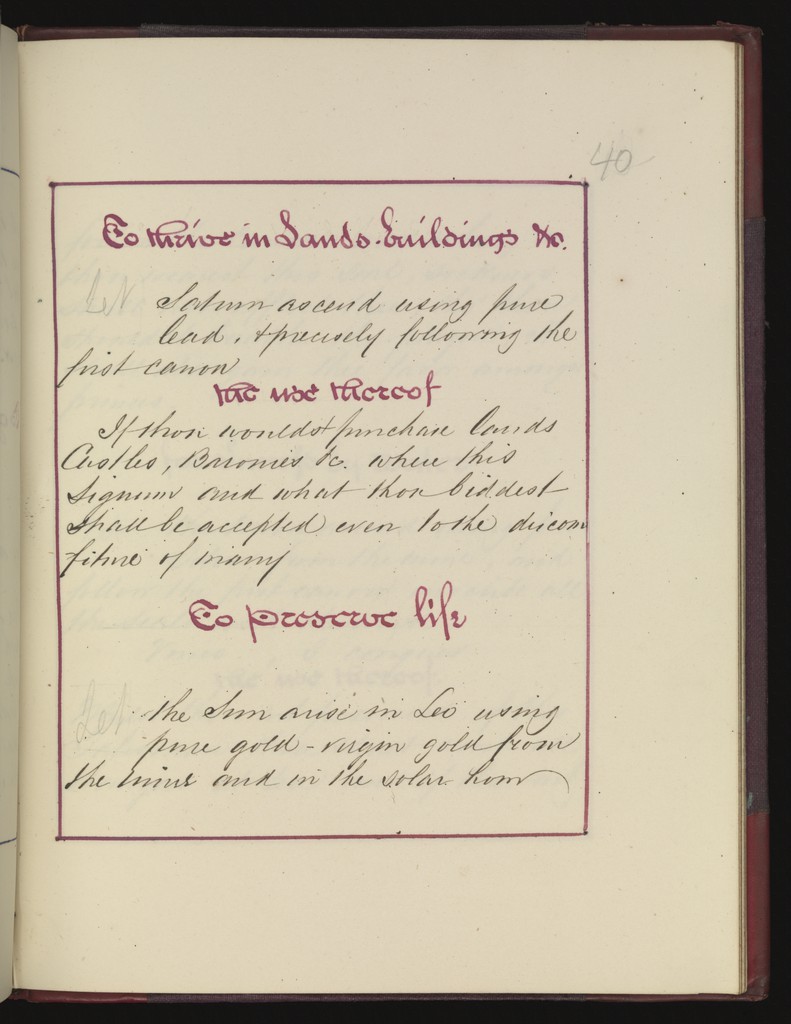 40
To thrive in Lands. buildings &c.
Let Saturn ascend using pure
lead, & precisely following the
first canon
the use thereof
If thou wouldst purchase lands
Castles, Baronies &c. where this
Signum and what thou biddest
shall be accepted even to the discom
fiture of many
To preserve life
Let the Sun arise in Leo using
pure gold - virgin gold from
the mine and in the solar hour